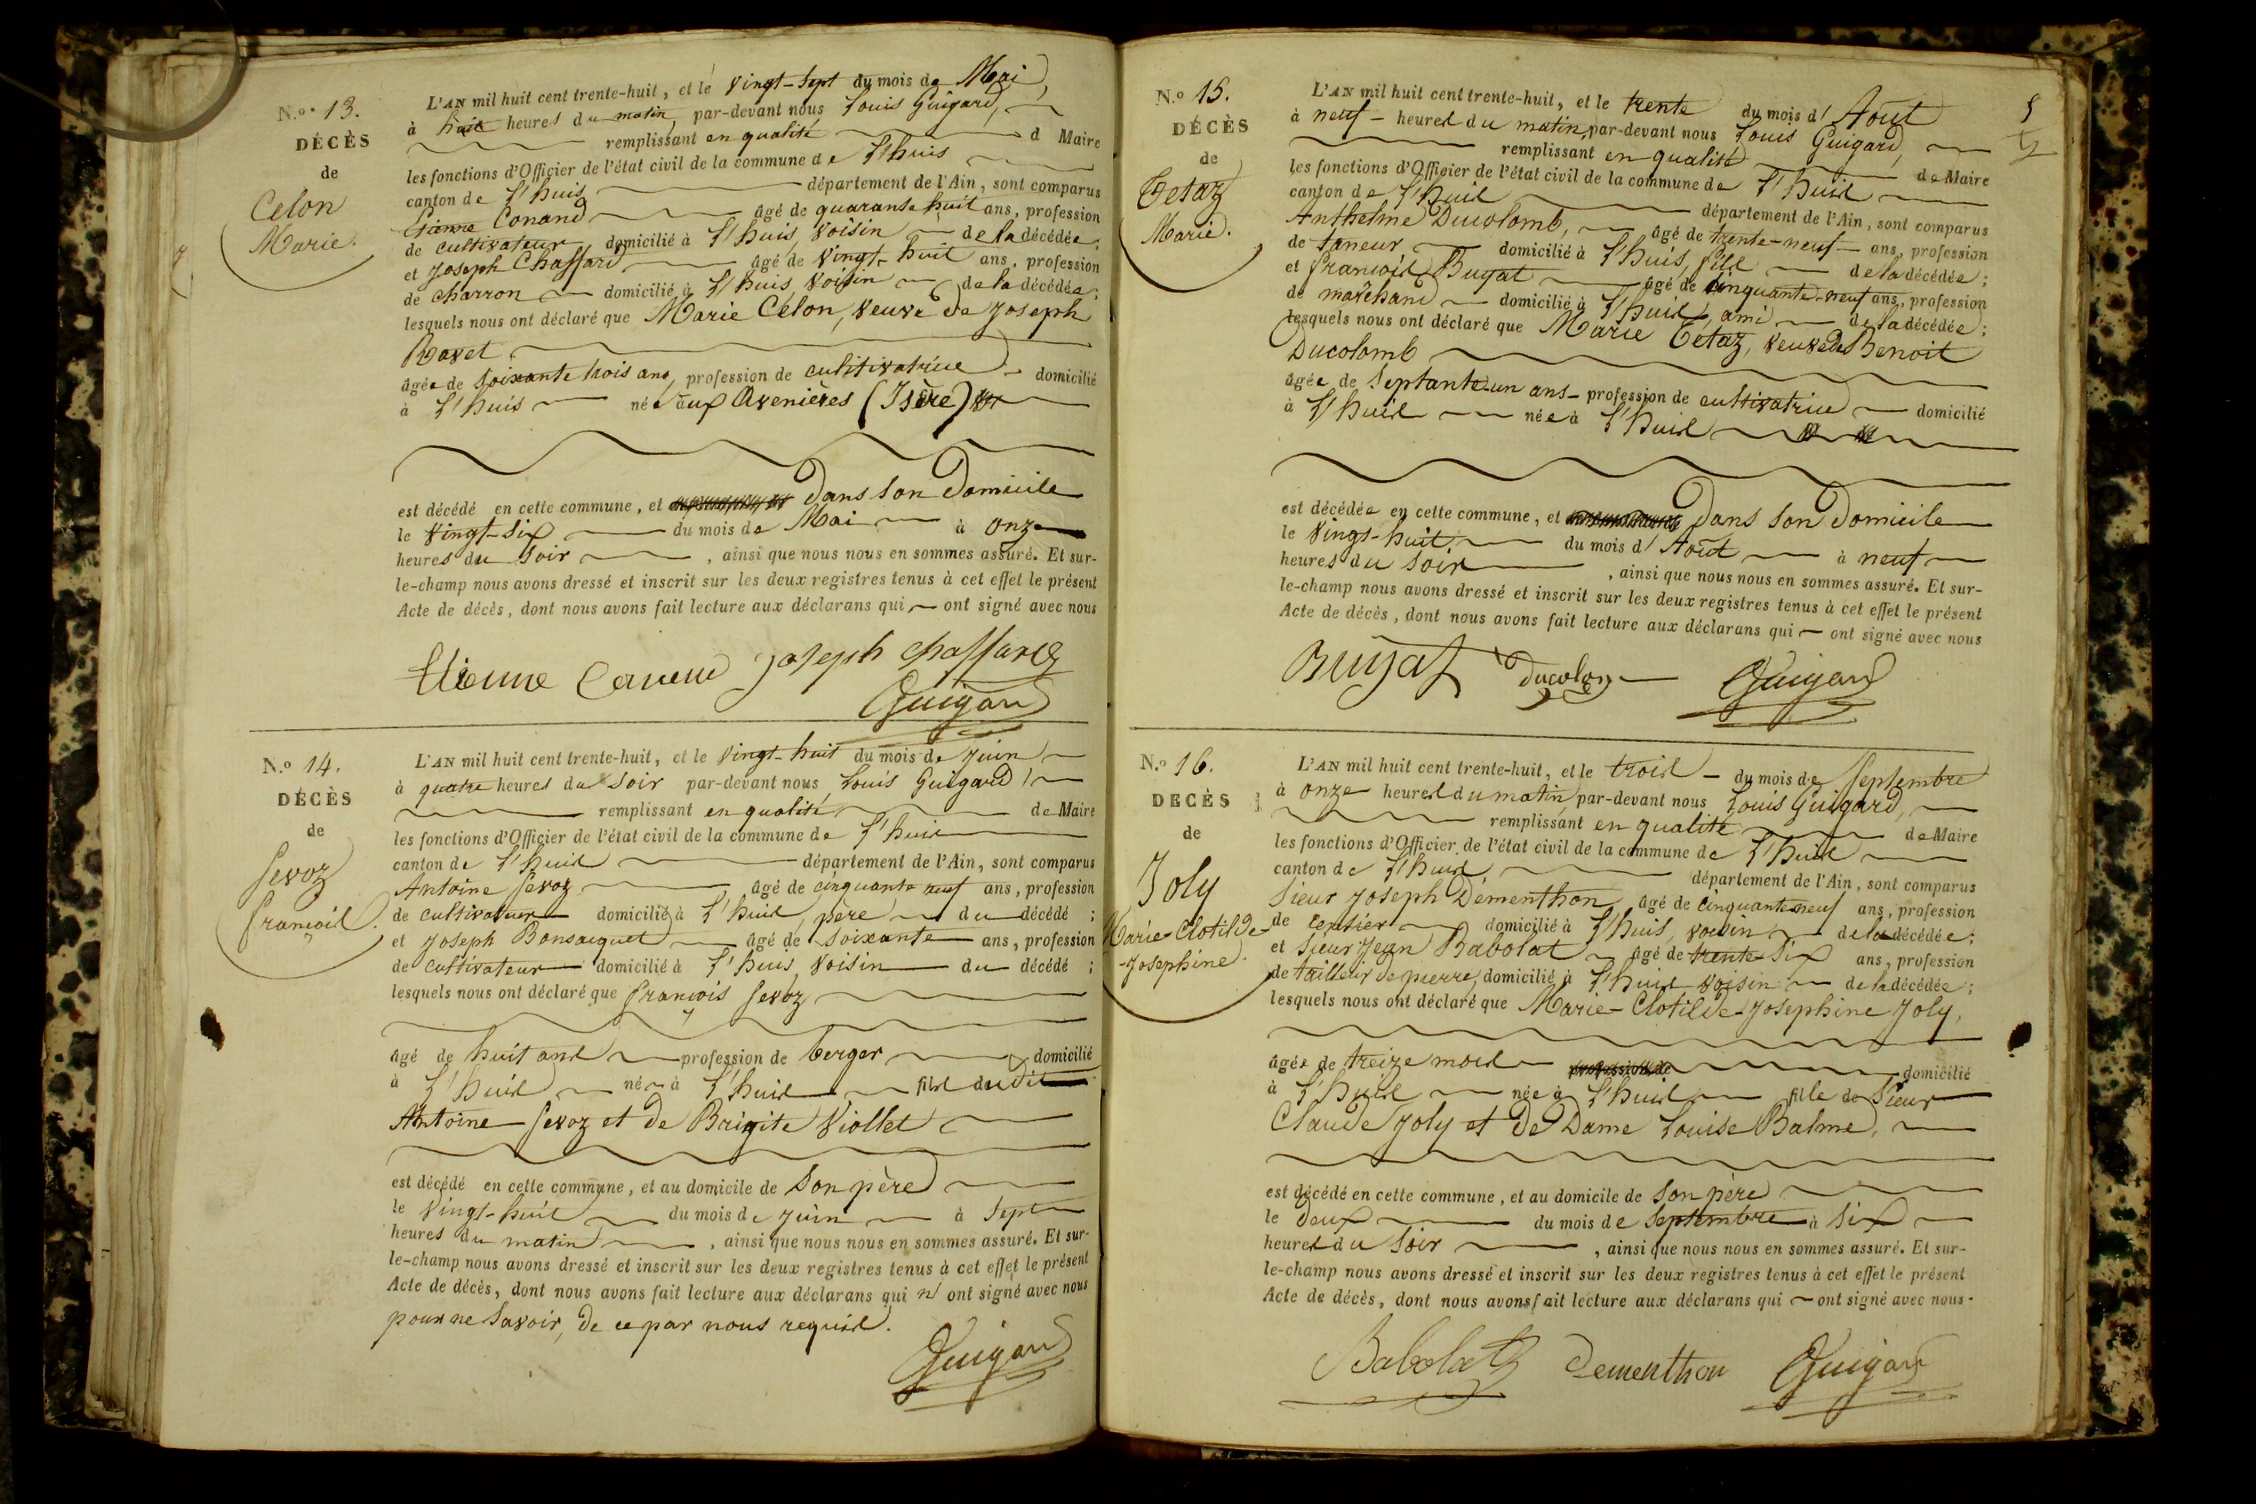 N.o 13.
DÉCÈS
de
Celon
Marie.
L'AN mil huit cent trente-huit, et le vingt-sept du mois de Mai,
à huit heures du matin, par-devant nous Louis Guigard,
remplissant en qualité d Maire
les fonctions d'Officier de l'état civil de la commune de L'huis
canton de L'huis département de l'Ain, sont comparus
Etienne Conand âgé de quarante huit ans, profession
de cultivateur domicilié à L'huis, voisin de la décédée;
et Joseph Chaffard âgé de vingt-huit ans, profession
de charron domicilié à L'huis, voisin de la décédée;
lesquels nous ont déclaré que Marie Celon, veuve de Joseph
Ravet
âgée de soixante trois ans, profession de cultivatrice domicilié
à L'huis née aux Avenières (Isère)
est décédé en cette commune, et dans son domicile
le vingt-six du mois de Mai à onze
heures du soir, ainsi que nous nous en sommes assuré. Et sur-
le-champ nous avons dressé et inscrit sur les deux registres tenus à cet effet le présent
Acte de décès, dont nous avons fait lecture aux déclarans qui ont signé avec nous
Etienne Joseph chaffard
Guigard
N.o 14.
DÉCÈS
de
Sevoz
François.
L'AN mil huit cent trente-huit, et le vingt-huit du mois de Juin
à quatre heures du soir par-devant nous Louis Guigard,
remplissant en qualité de Maire
les fonctions d'Officier de l'état civil de la commune de L'huis
canton de L'huis département de l'Ain, sont comparus
Antoine Sevoz, âgé de cinquante neuf ans, profession
de cultivateur domicilié à L'huis, père du décédé;
et Joseph Bonsacquet âgé de soixante ans, profession
de cultivateur domicilié à L'huis, voisin du décédé;
lesquels nous ont déclaré que François Sevoz
âgé de huit ans profession de berger domicilié
à L'huis né à L'huis fils du dit
Antoine Sevoz et de Brigite Viollet
est décédé en cette commune, et au domicile de son père
le vingt-huit du mois de Juin à sept
heures du matin, ainsi que nous nous en sommes assuré. Et sur-
le-champ nous avons dressé et inscrit sur les deux registres tenus à cet effet le présent
Acte de décès, dont nous avons fait lecture aux déclarans qui n'ont signé avec nous
pour ne savoir, de ce par nous requis.
Guigard
N.o 15.
DÉCÈS
de
Tetaz
Marie.
5
L'AN mil huit cent trente-huit, et le trente du mois d'Août
à neuf heures du matin, par-devant nous Louis Guigard,
remplissant en qualité de Maire
les fonctions d'Officier de l'état civil de la commune de L'huis
canton de L'huis département de l'Ain, sont comparus
Anthelme Ducolomb, âgé de trente-neuf ans, profession
de taneur domicilié à L'huis, fils de la décédée;
et François Bugat âgé de cinquante-neuf ans, profession
de marchand domicilié à L'huis, ami de la décédée;
lesquels nous ont déclaré que Marie Tetaz, veuve de Benoit
Ducolomb
âgée de septante-un ans profession de cultivatrice domicilié
à L'huis née à L'huis
est décédée en cette commune, et dans son domicile
le vingt-huit du mois d'Août à neuf
heures du soir, ainsi que nous nous en sommes assuré. Et sur-
le-champ nous avons dressé et inscrit sur les deux registres tenus à cet effet le présent
Acte de décès, dont nous avons fait lecture aux déclarans qui ont signé avec nous
Bugat Ducolomb Guigard
N.o 16.
DÉCÈS
de
Joly
Marie-Clotilde-
-Josephine.
L'AN mil huit cent trente-huit, et le trois du mois de Septembre
à onze heures du matin, par-devant nous Louis Guigard,
remplissant en qualité de Maire
les fonctions d'Officier de l'état civil de la commune de L'huis
canton de L'huis département de l'Ain, sont comparus
Sieur Joseph Dementhon, âgé de cinquante-neuf ans, profession
de rentier domicilié à L'huis, voisin de la décédée;
et Sieur Jean Babolat âgé de trente-six ans, profession
de tailleur de pierre, domicilié à L'huis voisin de la décédée;
lesquels nous ont déclaré que Marie-Clotilde-Josephine Joly,
âgée de treize mois profession de domicilié
à L'huis née à L'huis fille de Sieur
Claude Joly et de Dame Louise Balme,
est décédé en cette commune, et au domicile de son père
le deux du mois de Septembre à six
heures du soir, ainsi que nous nous en sommes assuré. Et sur-
le-champ nous avons dressé et inscrit sur les deux registres tenus à cet effet le présent
Acte de décès, dont nous avons fait lecture aux déclarans qui ont signé avec nous.
Babolat Dementhon Guigard